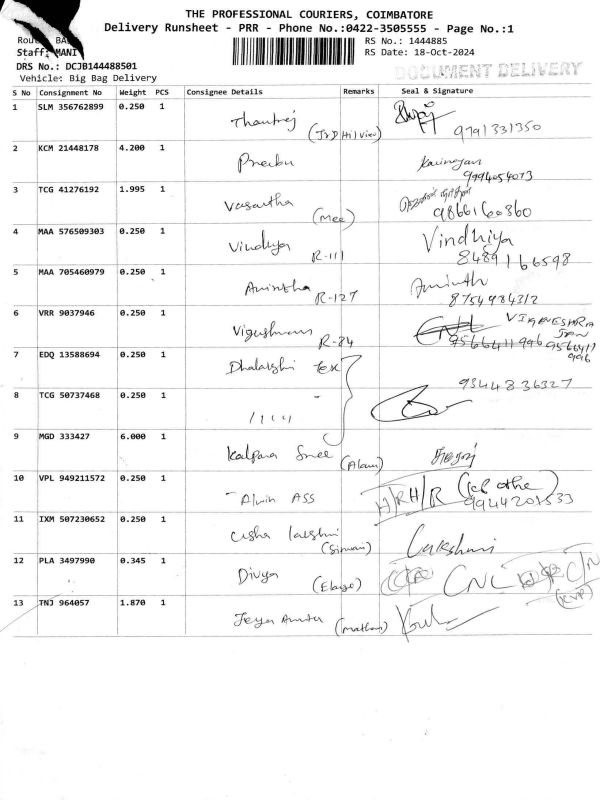 THE PROFESSIONAL COURIERS, COIMBATORE
Delivery Runsheet - PRR - Phone No.:0422-3505555 - Page No.:1
RS No.: 1444885
Staff: MANI RS Date: 18-Oct-2024
DRS No.: DCJB144488501
DOCUMENT DELIVERY
Vehicle: Big Bag Delivery
S No Consignment No Weight PCS Consignee Details Remarks Seal & Signature
1 SLM 356762899 0.250 1
9791331350
2 KCM 21448178 4.200 1
9994054073
3 TCG 41276192 1.995 1 Vasantha (Mee)
9866160860
4 MAA 576509303 0.250 1 Vindhya R-111 Vindhiya
8489166598
5 MAA 705460979 0.250 1 R-127
8754984312
6 VRR 9037946 0.250 1 R-84
9566411996 9566411
996
7 EDQ 13588694 0.250 1 Tex
9344836327
8 TCG 50737468 0.250 1
9 MGD 333427 6.000 1 Kalpana Sree (Alam)
10 VPL 949211572 0.250 1 Alwin ASS H/R H/R
9944201533
11 IXM 507230652 0.250 1 Usha lakshmi Lakshmi
12 PLA 3497990 0.345 1 Divya CNC C/N
13 TNJ 964057 1.870 1 Jeya